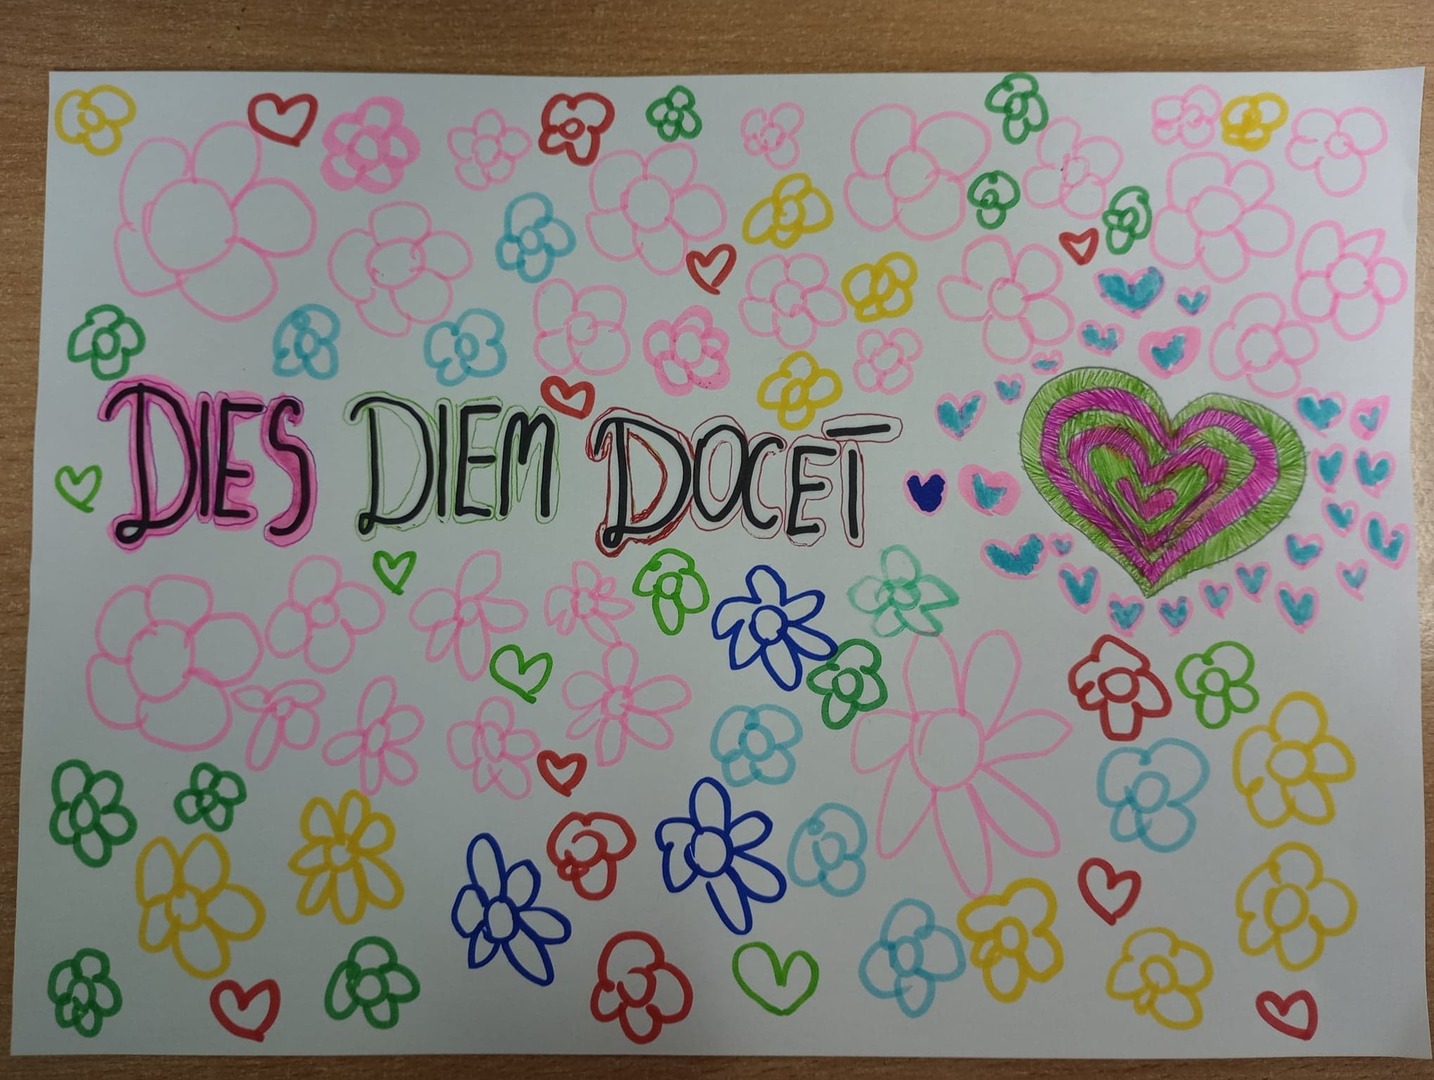 DIES DIEM DOCET